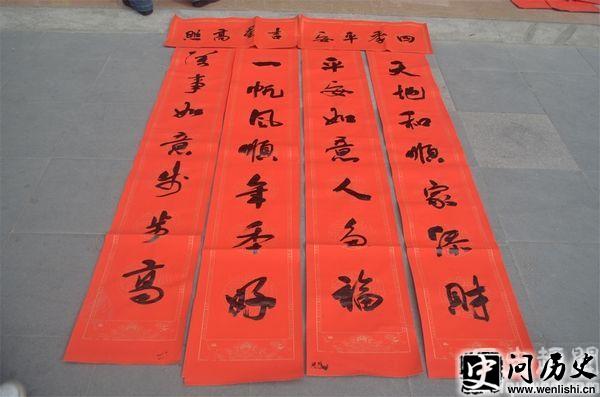 四季平安
吉星高照
天地和順家添财
平安如意人多福
一帆风順年年好
萬事如意步步高
史 问历史
www.wenlishi.cn